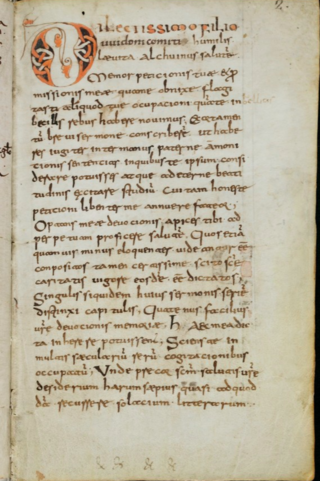 Dilectissimo filio
uuidoni comiti humilis
laeuita alchuinus salutẽ
Memor peticionis tuæ & p̃
missionis meæ quame obnixe flagi
tasti aliquod tuæ ocupacioni quã te in
becillis rebus habere nouimus Exortamen
tũ breui sermone conscribere ut habe
res iugiter inter manus paterne amoni
cionis sentencias inquibus te ipsum consi
derare potuisses atque ad eterne beati
tudinis excitare studiũ Cui tam honeste
peticioni libenter me annuere fateor
Optans meæ deuocionis apices tibi ad
perpetuam proficere salutẽ Quos etiã
quamuis minus eloquenter uideantur eẽ
compositas tamen certissime scito scẽ
caritatis uigore eosdẽ eẽ dictatos
Singulis siquidem huius sermonis sentẽ
distinxi capitulis Quatenus faciliur
ur̃e deuocionis memoriæ h Aec meada
ta inherere potuissent Sciens te in
multas sæcularium rerũ cogitacionibus
occupatũ Unde p̃cor scm̃ salutis ur̃e
desiderium harum sæpius quasi ad quod
dã recurrere solacium litterarum